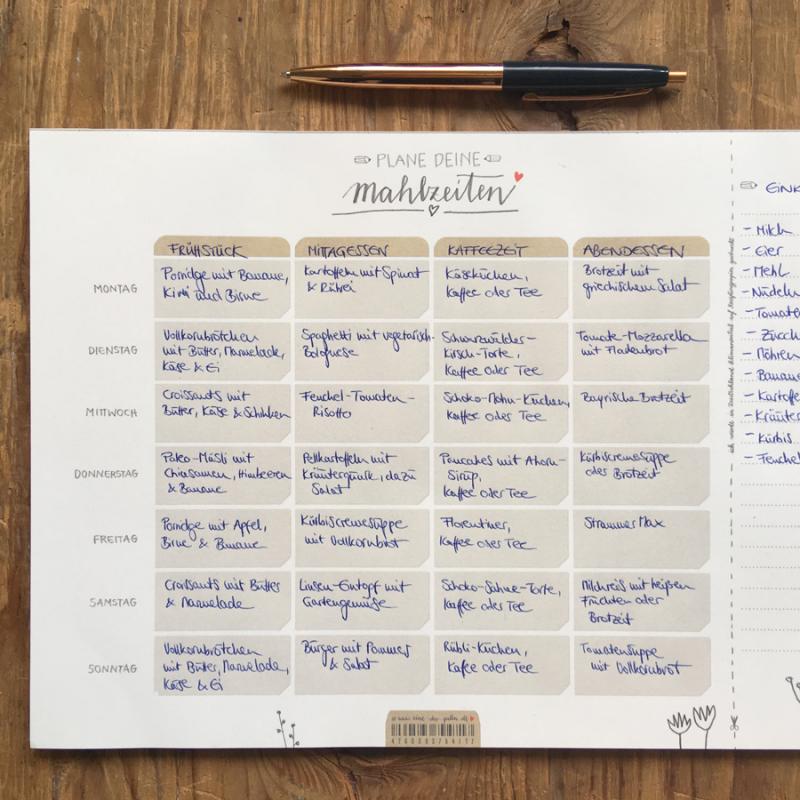 PLANE DEINE
mahlzeiten
FRÜHSTÜCK MITTAGESSEN KAFFEEZEIT ABENDESSEN
MONTAG
Porridge mit Banane,
Kiwi und Birne
Kartoffeln mit Spinat
& Rührei
Käsekuchen,
Kaffee oder Tee
Brotzeit mit
griechischem Salat
DIENSTAG
Vollkornbrötchen
mit Butter, Marmelade,
Käse & Ei
Spaghetti mit vegetarisch.
Bolognese
Schwarzwälder-
Kirsch-Torte,
Kaffee oder Tee
Tomate-Mozzarella
mit Fladenbrot
MITTWOCH
Croissants mit
Butter, Käse & Schinken
Fenchel-Tomaten-
Risotto
Schoko-Mohn-Kuchen,
Kaffee oder Tee
Bayrische Brotzeit
DONNERSTAG
Paleo-Müsli mit
Chiasamen, Himbeeren
& Banane
Pellkartoffeln mit
Kräuterquark, dazu
Salat
Pancakes mit Ahorn-
Sirup,
Kaffee oder Tee
Kürbiscremesuppe
oder Brotzeit
FREITAG
Porridge mit Apfel,
Birne & Banane
Kürbiscremesuppe
mit Vollkornbrot
Florentiner,
Kaffee oder Tee
Strammer Max
SAMSTAG
Croissants mit Butter
& Marmelade
Linsen-Eintopf mit
Gartengemüse
Schoko-Sahne-Torte,
Kaffee oder Tee
Milchreis mit heißen
Früchten oder
Brotzeit
SONNTAG
Vollkornbrötchen
mit Butter, Marmelade,
Käse & Ei
Burger mit Pommes
& Salat
Rübli-Kuchen,
Kaffee oder Tee
Tomatensuppe
mit Vollkornbrot
EINK
- Milch
- Eier
- Mehl
- Nudeln
- Tomate
- Zucch
- Möhren
- Banane
- Kartoffe
- Kräuter
- Kürbis
- Fenchel